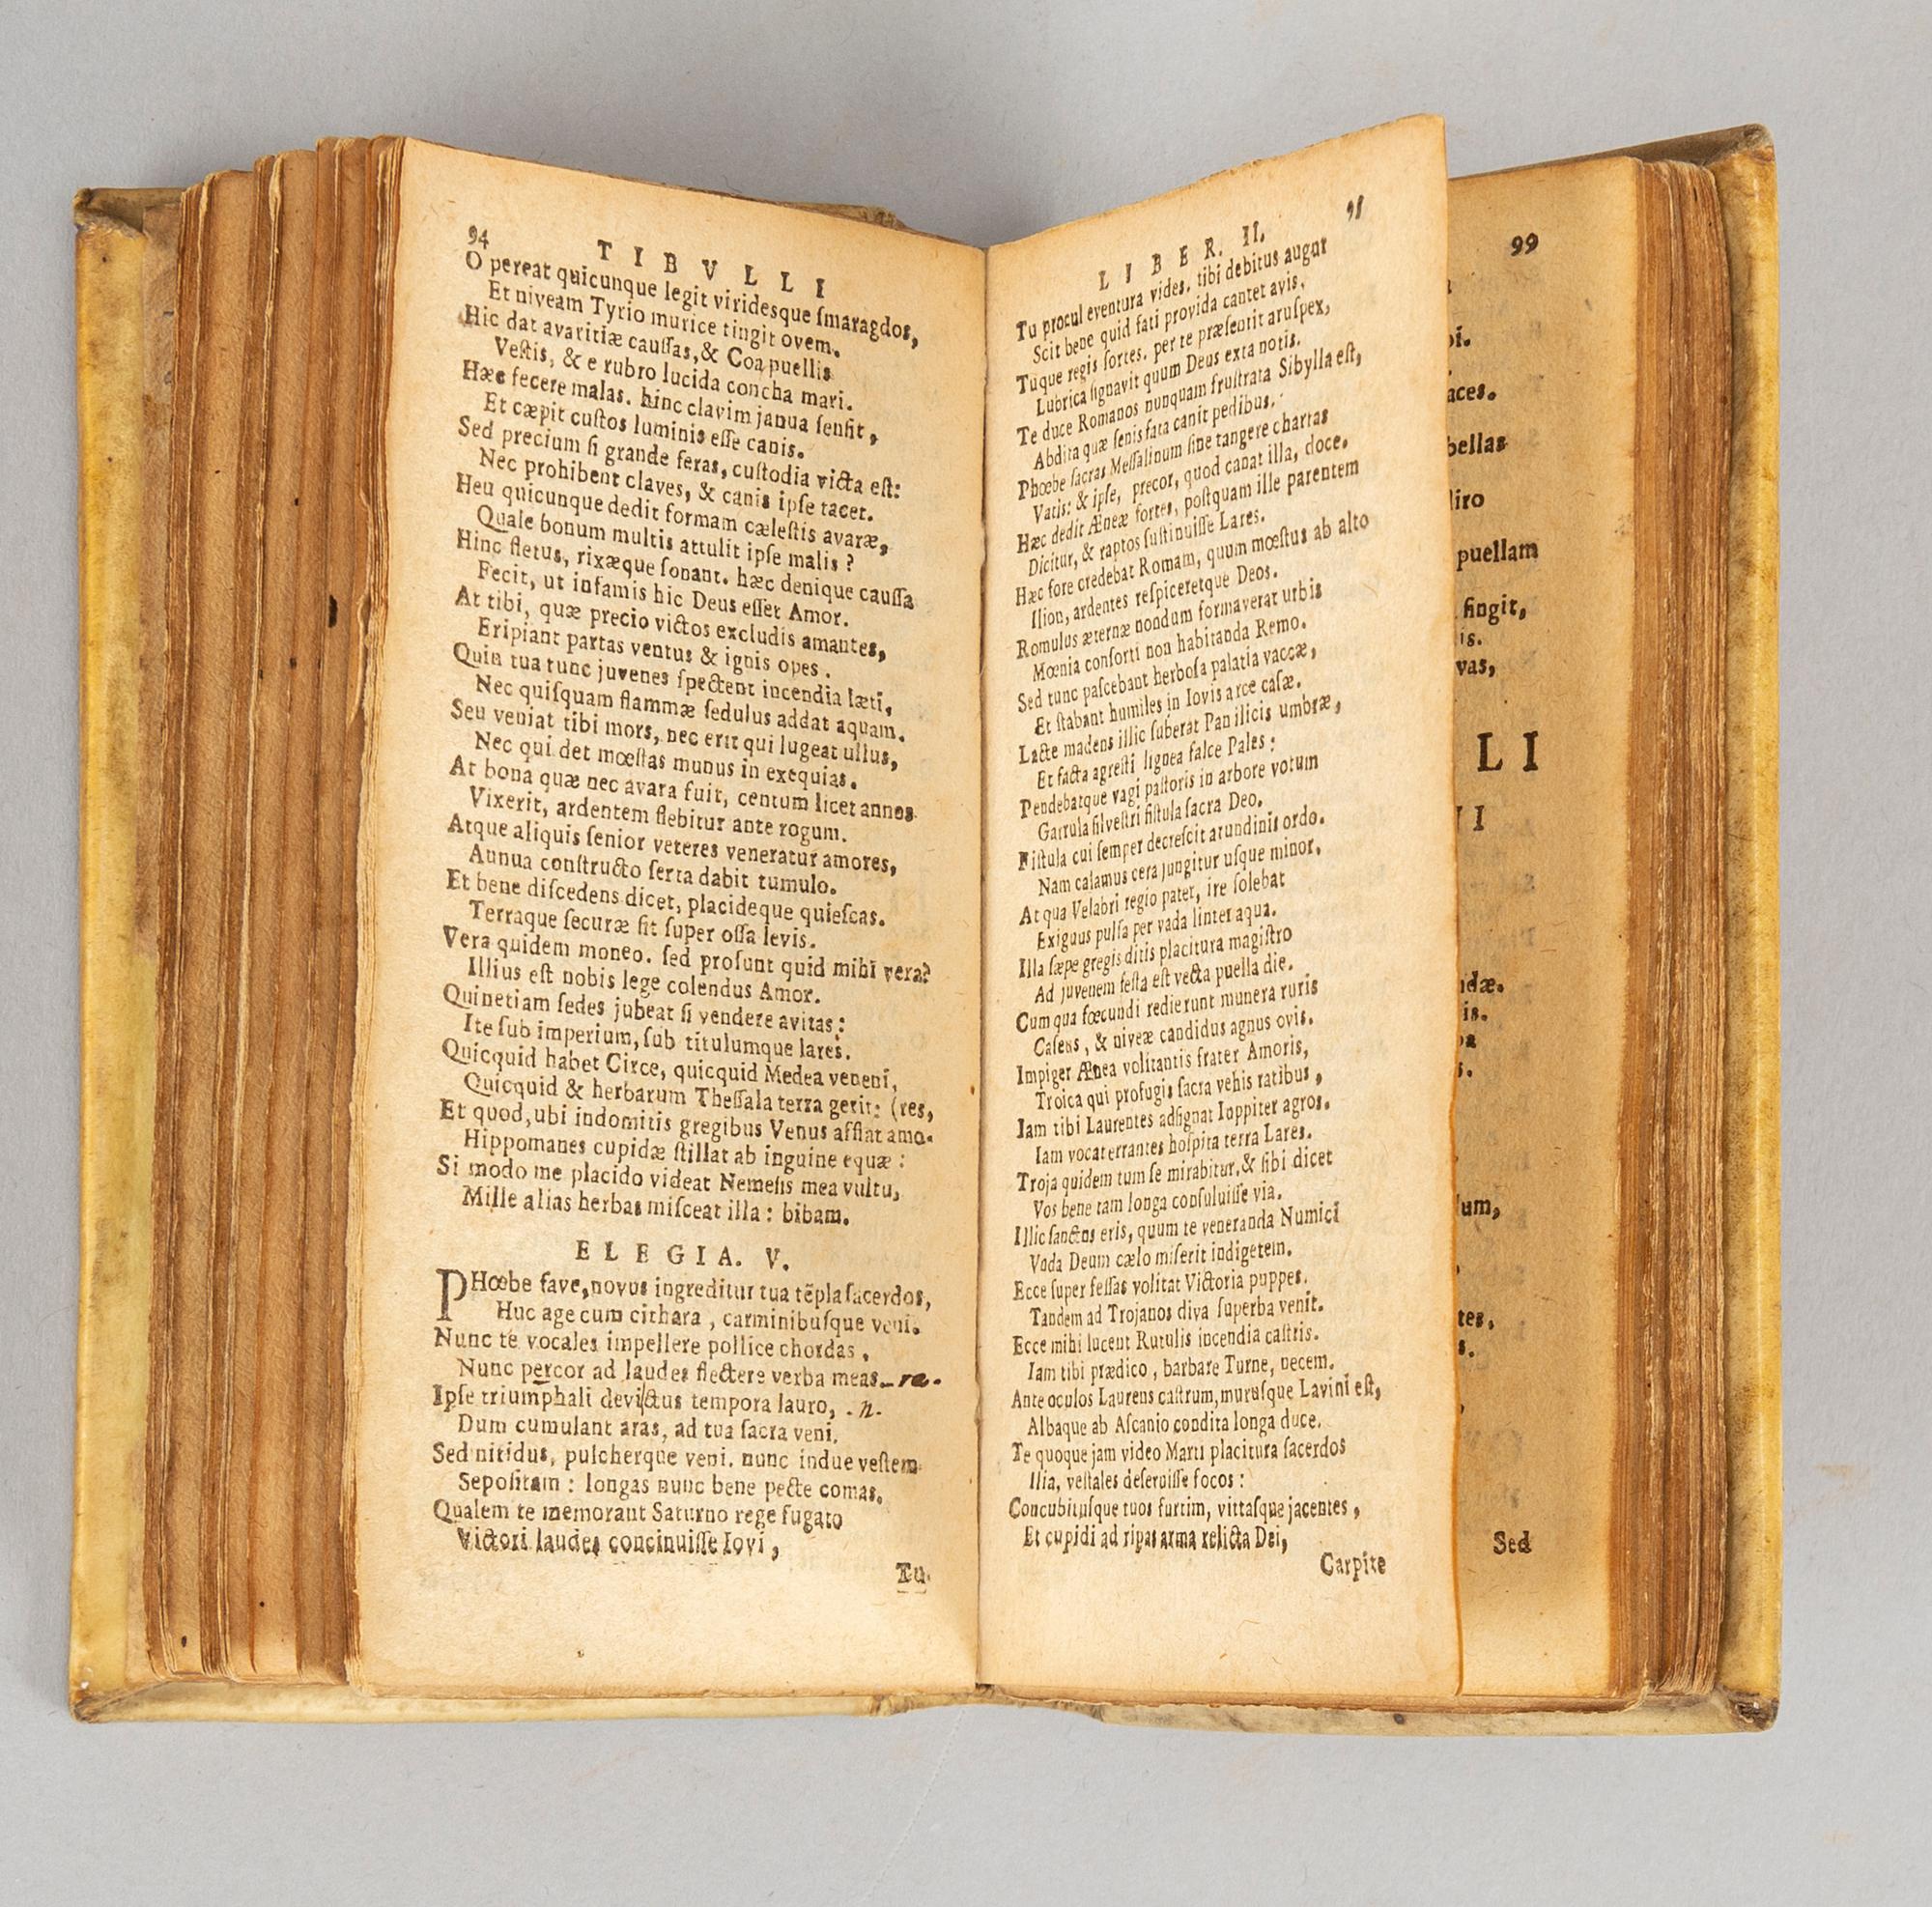 94
TIBVLLI
O pereat quicunque legit viridesque ſmaragdos,
Et niveam Tyrio murice tingit ovem.
Hic dat avaritiæ cauſſas, & Coa puellis
Veſtis, & e rubro lucida concha mari.
Hæc fecere malas. hinc clavim janua ſenſit,
Et cæpit cuſtos luminis eſſe canis.
Sed precium ſi grande feras, cuſtodia victa eſt:
Nec prohibent claves, & canis ipſe tacet.
Heu quicunque dedit formam cæleſtis avaræ,
Quale bonum multis attulit ipſe malis?
Hinc fletus, rixæque ſonant. hæc denique cauſſa
Fecit, ut infamis hic Deus eſſet Amor.
At tibi, quæ precio victos excludis amantes,
Eripiant partas ventus & ignis opes.
Quin tua tunc juvenes ſpectent incendia læti,
Nec quiſquam flammæ ſedulus addat aquam.
Seu veniat tibi mors, nec erit qui lugeat ullus,
Nec qui det mœſtas munus in exequias.
At bona quæ nec avara fuit, centum licet annos
Vixerit, ardentem flebitur ante rogum.
Atque aliquis ſenior veteres veneratur amores,
Annua conſtructo ſerta dabit tumulo.
Et bene diſcedens dicet, placideque quieſcas.
Terraque ſecuræ ſit ſuper oſſa levis.
Vera quidem moneo. ſed proſunt quid mihi vera?
Illius eſt nobis lege colendus Amor.
Quinetiam ſedes jubeat ſi vendere avitas:
Ite ſub imperium, ſub titulumque lares.
Quicquid habet Circe, quicquid Medea veneni,
Quicquid & herbarum Theſſala terra gerit: (res,
Et quod, ubi indomitis gregibus Venus afflat amo-
Hippomanes cupidæ ſtillat ab inguine equæ:
Si modo me placido videat Nemeſis mea vultu,
Mille alias herbas miſceat illa: bibam.
ELEGIA. V.
PHœbe fave, novus ingreditur tua tẽpla ſacerdos,
Huc age cum cithara, carminibuſque veni.
Nunc te vocales impellere pollice chordas,
Nunc percor ad laudes flectere verba meas. re.
Ipſe triumphali devictus tempora lauro, .n.
Dum cumulant aras, ad tua ſacra veni.
Sed nitidus, pulcherque veni. nunc indue veſtem
Sepoſitam: longas nunc bene pecte comas.
Qualem te memorant Saturno rege fugato
Victori laudes concinuiſſe Iovi,
Tu
LIBER. II.
Tu procul eventura vides. tibi debitus augur
Scit bene quid fati provida cantet avis.
Tuque regis ſortes. per te præſentit aruſpex,
Lubrica ſignavit quum Deus exta notis.
Te duce Romanos nunquam fruſtrata Sibylla eſt,
Abdita quæ ſenis fata canit pedibus.
Phœbe ſacras Meſſalinum ſine tangere chartas
Vatis: & ipſe, precor, quod canat illa, doce.
Hæc dedit Æneæ ſortes, poſtquam ille parentem
Dicitur, & raptos ſuſtinuiſſe Lares.
Hæc fore credebat Romam, quum mœſtus ab alto
Ilion, ardentes reſpiceretque Deos.
Romulus æternæ nondum formaverat urbis
Mœnia conſorti non habitanda Remo.
Sed tunc paſcebant herboſa palatia vaccæ,
Et ſtabant humiles in Iovis arce caſæ.
Lacte madens illic ſuberat Pan ilicis umbræ,
Et facta agreſti lignea falce Pales:
Pendebatque vagi paſtoris in arbore votum
Garrula ſilveſtri fiſtula ſacra Deo.
Fiſtula cui ſemper decreſcit arundinis ordo.
Nam calamus cera jungitur uſque minor.
At qua Velabri regio patet, ire ſolebat
Exiguus pulſa per vada linter aqua.
Illa ſæpe gregis ditis placitura magiſtro
Ad juvenem feſta eſt vecta puella die.
Cum qua fœcundi redierunt munera ruris
Caſeus, & niveæ candidus agnus ovis.
Impiger Ænea volitantis frater Amoris,
Troica qui profugis ſacra vehis ratibus,
Iam tibi Laurentes adſignat Ioppiter agros.
Iam vocat errantes hoſpita terra Lares.
Troja quidem tum ſe mirabitur, & ſibi dicet
Vos bene tam longa conſuluiſſe via.
Illic ſanctus eris, quum te veneranda Numici
Vada Deum cælo miſerit indigetem.
Ecce ſuper feſſas volitat Victoria puppes.
Tandem ad Trojanos diva ſuperba venit.
Ecce mihi lucent Rutulis incendia caſtris.
Iam tibi prædico, barbare Turne, necem.
Ante oculos Laurens caſtrum, muruſque Lavini eſt,
Albaque ab Aſcanio condita longa duce.
Te quoque jam video Marti placitura ſacerdos
Ilia, veſtales deſeruiſſe focos:
Concubituſque tuos furtim, vittaſque jacentes,
Et cupidi ad ripas arma relicta Dei,
Carpite
99
aces.
bellas
puellam
fingit,
is.
vas,
LI
I
is.
um,
tes,
Sed